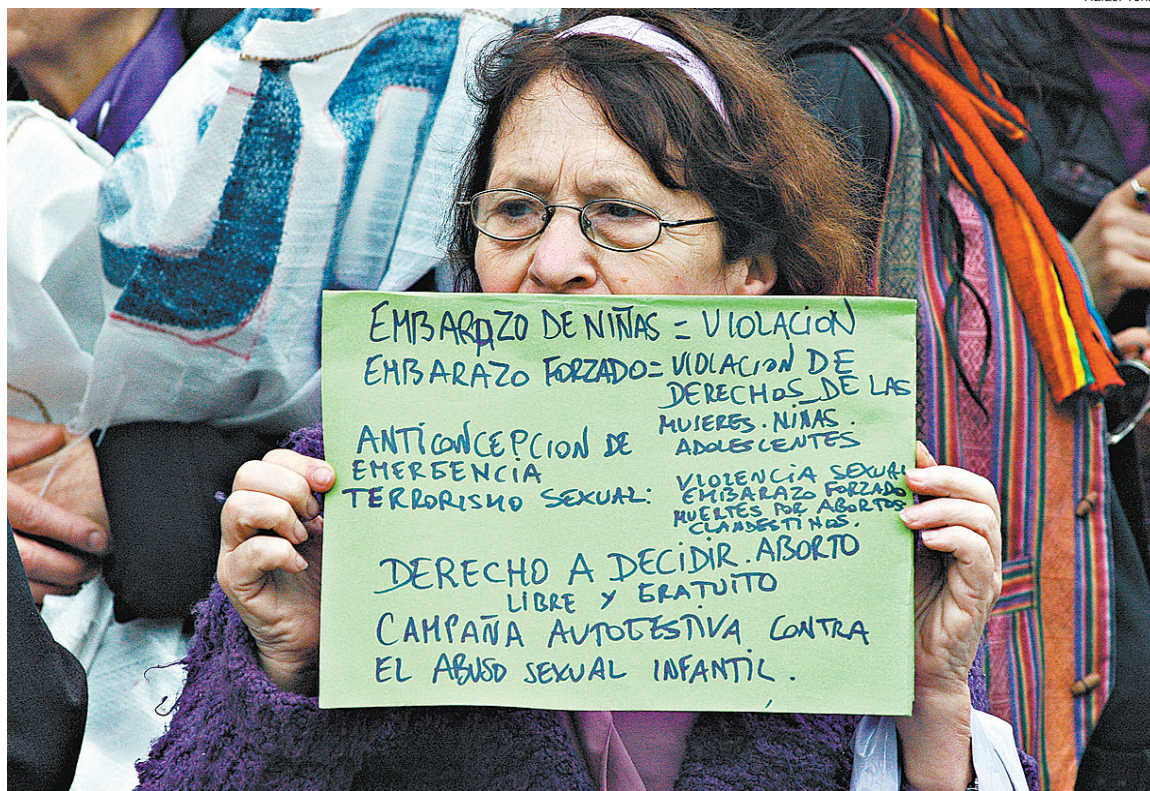 Rafael
EMBARAZO DE NIÑAS = VIOLACION
EMBARAZO FORZADO = VIOLACION DE
DERECHOS DE LAS
MUJERES. NIÑAS.
ADOLESCENTES
ANTICONCEPCION DE
EMERGENCIA
TERRORISMO SEXUAL:
VIOLENCIA SEXUAL
EMBARAZO FORZADO
MUERTES POR ABORTOS
CLANDESTINOS.
DERECHO A DECIDIR. ABORTO
LIBRE Y GRATUITO
CAMPAÑA AUTOGESTIVA CONTRA
EL ABUSO SEXUAL INFANTIL.